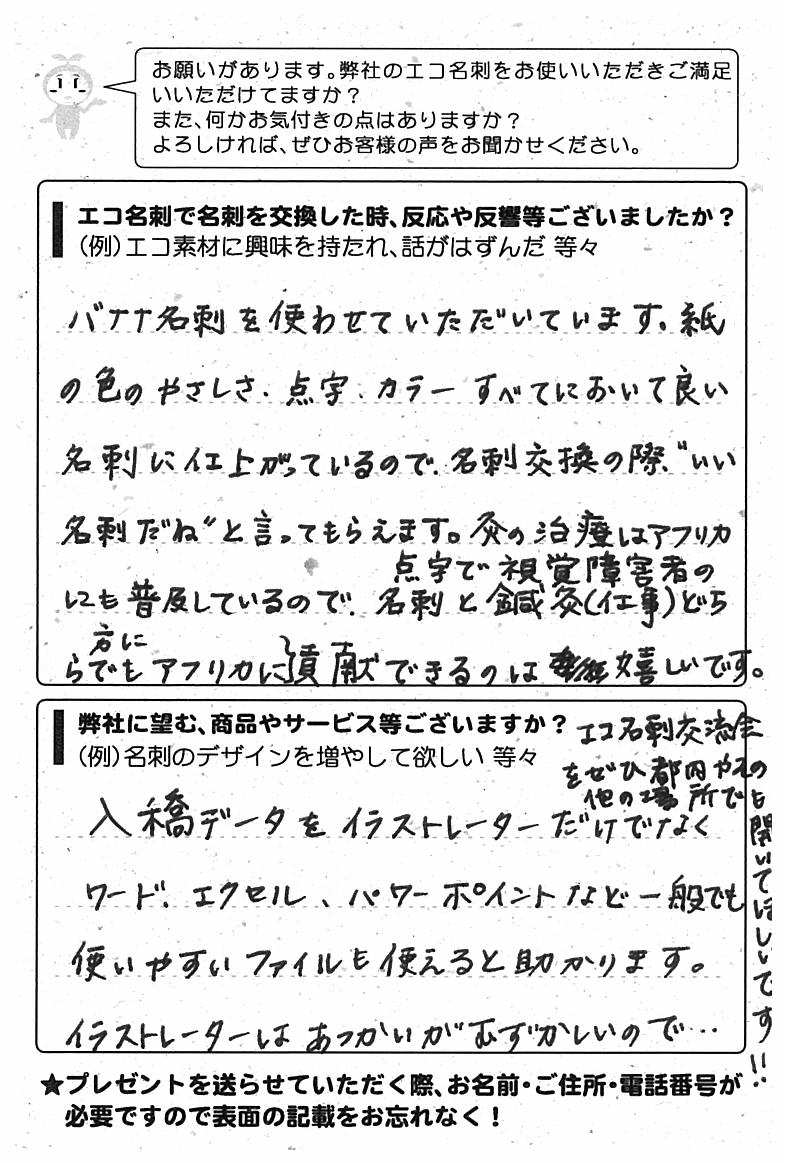 お願いがあります。弊社のエコ名刺をお使いいただきご満足
いいただけてますか？
また、何かお気付きの点はありますか？
よろしければ、ぜひお客様の声をお聞かせください。
エコ名刺で名刺を交換した時、反応や反響等ございましたか？
（例）エコ素材に興味を持たれ、話がはずんだ 等々
バナナ名刺を使わせていただいています。紙
の色のやさしさ、点字、カラーすべてにおいて良い
名刺に仕上がっているので、名刺交換の際、"いい
名刺だね"と言ってもらえます。灸の治療はアフリカ
にも普及しているので、名刺と鍼灸(仕事)どち
点字で視覚障害者の
方に
らでもアフリカに貢献できるのは嬉しいです。
弊社に望む、商品やサービス等ございますか？
（例）名刺のデザインを増やして欲しい 等々
入稿データをイラストレーターだけでなく
ワード、エクセル、パワーポイントなど一般でも
使いやすいファイルも使えると助かります。
イラストレーターはあつかいがむずかしいので…
エコ名刺交流会
をぜひ都内やその
他の場所でも
開いてほしいです!!
★プレゼントを送らせていただく際、お名前・ご住所・電話番号が
必要ですので表面の記載をお忘れなく！